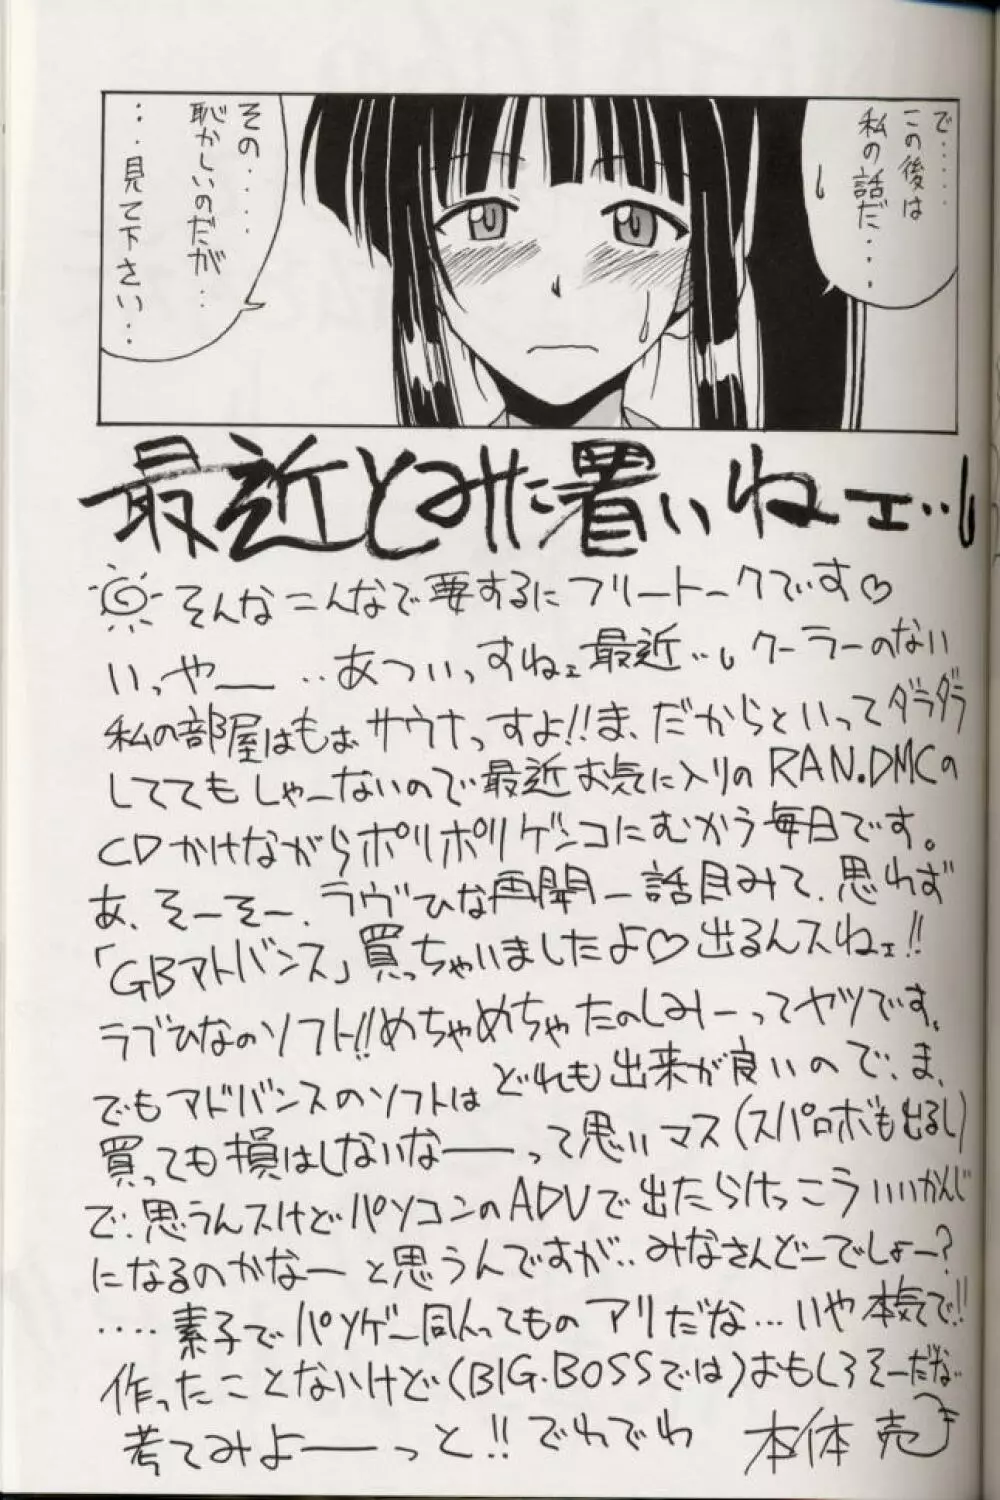 で‥‥‥
この後は
私の話だ・・・
その‥‥
恥かしいのだが‥
・・・見て下さい・・
最近とみに暑いねェ‥
そんなこんなで要するにフリートークです♡
いっやー‥あついっすねェ最近‥クーラーのない
私の部屋はもぉサウナっすよ!!ま、だからといってダラダラ
しててもしゃーないので最近お気に入りのRAN.DMCの
CDかけながらポリポリゲンコにむかう毎日です。
あ、そーそー、ラヴひな再開一話目みて、思わず
「GBアドバンス」買っちゃいましたよ♡出るんスねェ!!
ラブひなのソフト!!めちゃめちゃたのしみーってヤツです。
でもアドバンスのソフトはどれも出来が良いので、ま、
買っても損はしないなーって思いマス(スパロボも出るし)
で、思うんスけどパソコンのADVで出たらけっこういいかんじ
になるのかなーと思うんですが‥みなさんどーでしょー?
‥‥素子でパソゲー同人ってものアリだな…いや本気で!!
作ったことないけど(BIG.BOSSでは)おもしろそーだな
考えてみよーっと!!でわでわ
本体 売